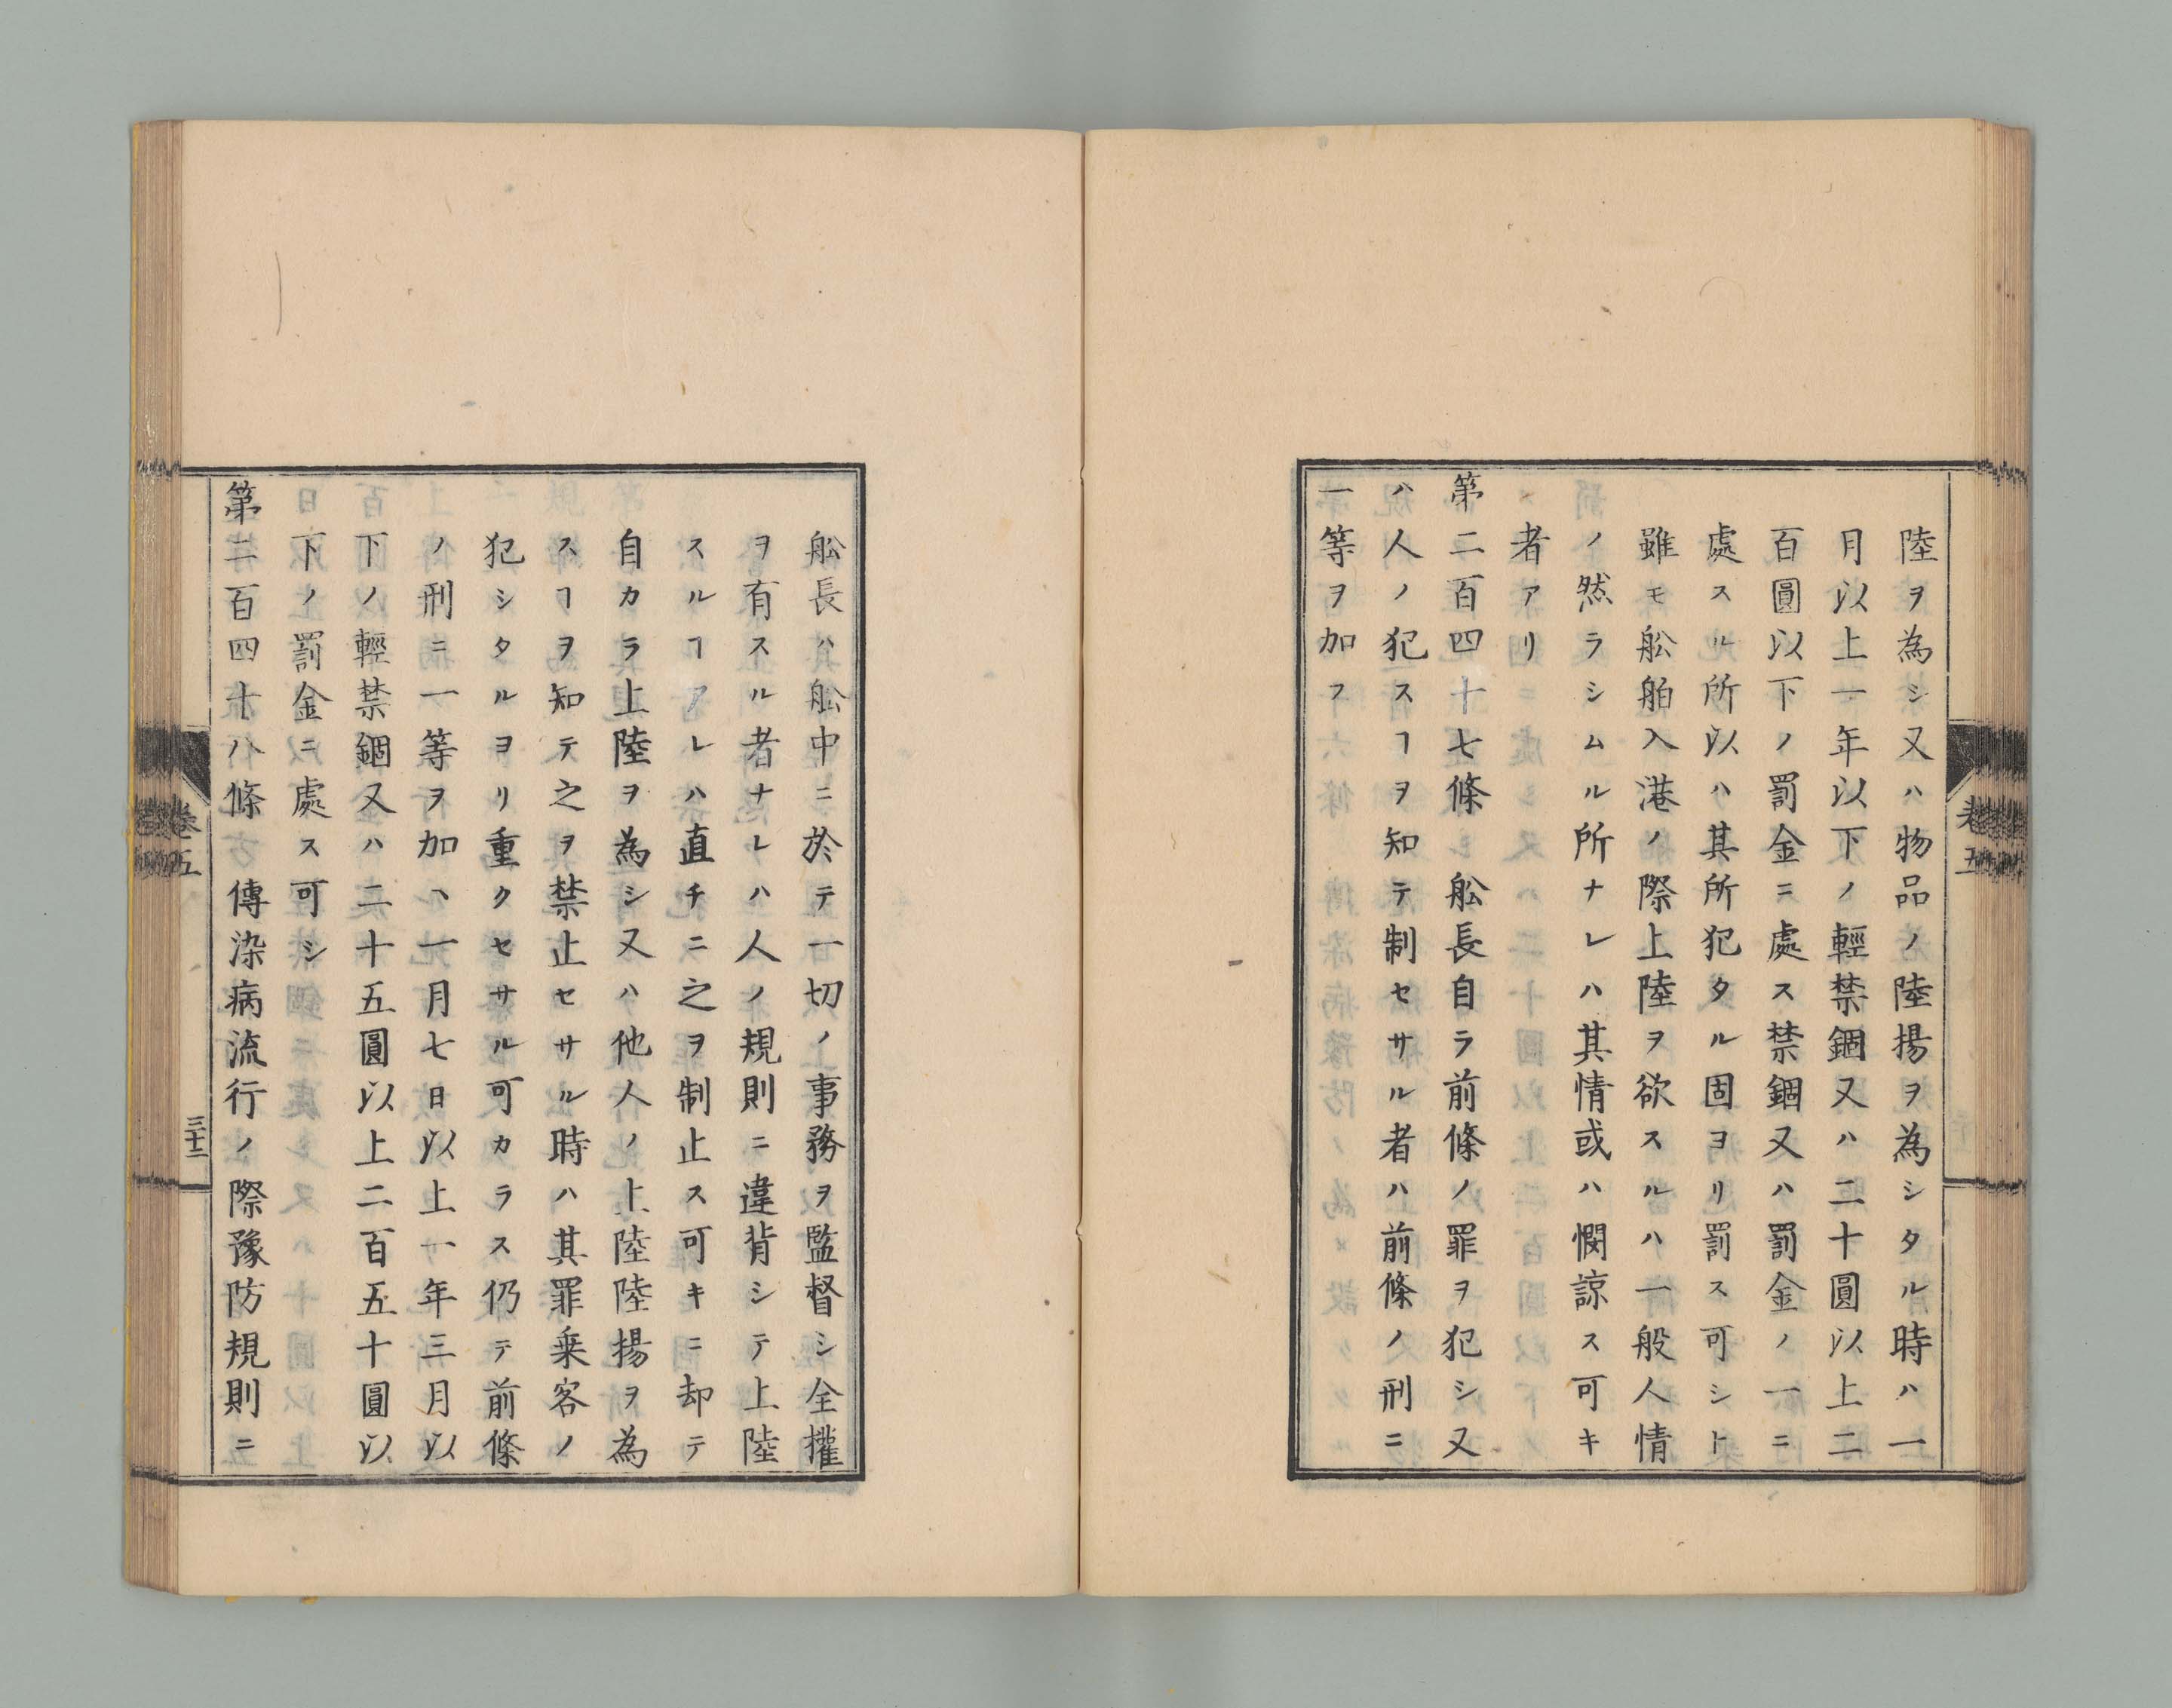 陸ヲ為シ又ハ物品ノ陸揚ヲ為シタル時ハ一
月以上一年以下ノ輕禁錮又ハ二十圓以上二
百圓以下ノ罰金ニ處ス禁錮又ハ罰金ノ一ニ
處スル所以ハ其所犯タル固ヨリ罰ス可シト
雖モ舩舶入港ノ際上陸ヲ欲スルハ一般人情
ノ然ラシムル所ナレハ其情或ハ憫諒ス可キ
者アリ
第二百四十七條舩長自ラ前條ノ罪ヲ犯シ又
ハ人ノ犯スヿヲ知テ制セサル者ハ前條ノ刑ニ
一等ヲ加フ
卷五
舩長ハ舩中ニ於テ一切ノ事務ヲ監督シ全權
ヲ有スル者ナレハ人ノ規則ニ違背シテ上陸
スルヿアレハ直チニ之ヲ制止ス可キニ却テ
自カラ上陸ヲ為シ又ハ他人ノ上陸陸揚ヲ為
スヿヲ知テ之ヲ禁止セサル時ハ其罪乗客ノ
犯シタルヨリ重クセサル可カラス仍テ前條
ノ刑ニ一等ヲ加ヘ一月七日以上一年三月以
下ノ輕禁錮又ハ二十五圓以上二百五十圓以
下ノ罰金ニ處ス可シ
第二百四十八條傳染病流行ノ際豫防規則ニ
卷五
三十二